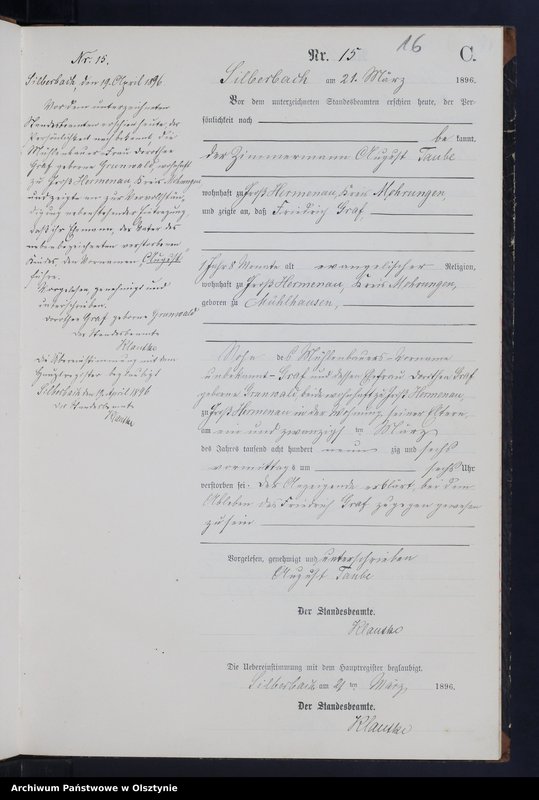 Nr. 15.
Silberbach, den 19. April 1896
Vor dem unterzeichneten
Standesbeamten erschien heute, der
Persönlichkeit nach bekannt, die
Mühlenbauer-Frau Dorothea
Graf geborene Grunwald, wohnhaft
zu Groß Hermenau, Kreis Mohrungen
und zeigte an zur Vervollstän-
digung nebenstehender Eintragung
daß ihr Ehemann, der Vater des
nebenbezeichneten verstorbenen
Kindes den Vornamen "August"
führe.
Vorgelesen, genehmigt und
unterschrieben.
Dorothea Graf geborene Grunwald
Der Standesbeamte
Klautke
Die Übereinstimmung mit dem
Hauptregister beglaubigt
Silberbach den 19. April 1896
Der Standesbeamte
Klautke
16
Nr. 15 C.
Silberbach am 21. März 1896.
Vor dem unterzeichneten Standesbeamten erschien heute, der Per-
sönlichkeit nach
be kannt,
der Zimmermann August Taube
wohnhaft zu Groß Hermenau, Kreis Mohrungen,
und zeigte an, daß Friedrich Graf,
1 Jahr 8 Monate alt evangelischer Religion,
wohnhaft zu Groß Hermenau, Kreis Mohrungen,
geboren zu Mühlhausen,
Sohn des Mühlenbauers - Vorname
unbekannt - Graf und dessen Ehefrau Dorothea Graf
geborene Grunwald, beide wohnhaft zu Groß Hermenau,
zu Groß Hermenau in der Wohnung seiner Eltern,
am ein und zwanzigsten März
des Jahres tausend acht hundert neun zig und sechs
vormittags um sechs Uhr
verstorben sei. Der Anzeigende erklärt, bei dem
Ableben des Friedrich Graf zugegen gewesen
zu sein
Vorgelesen, genehmigt und unterschrieben
August Taube
Der Standesbeamte.
Klautke
Die Uebereinstimmung mit dem Hauptregister beglaubigt.
Silberbach am 21 ten März 1896.
Der Standesbeamte.
Klautke
Archiwum Państwowe w Olsztynie